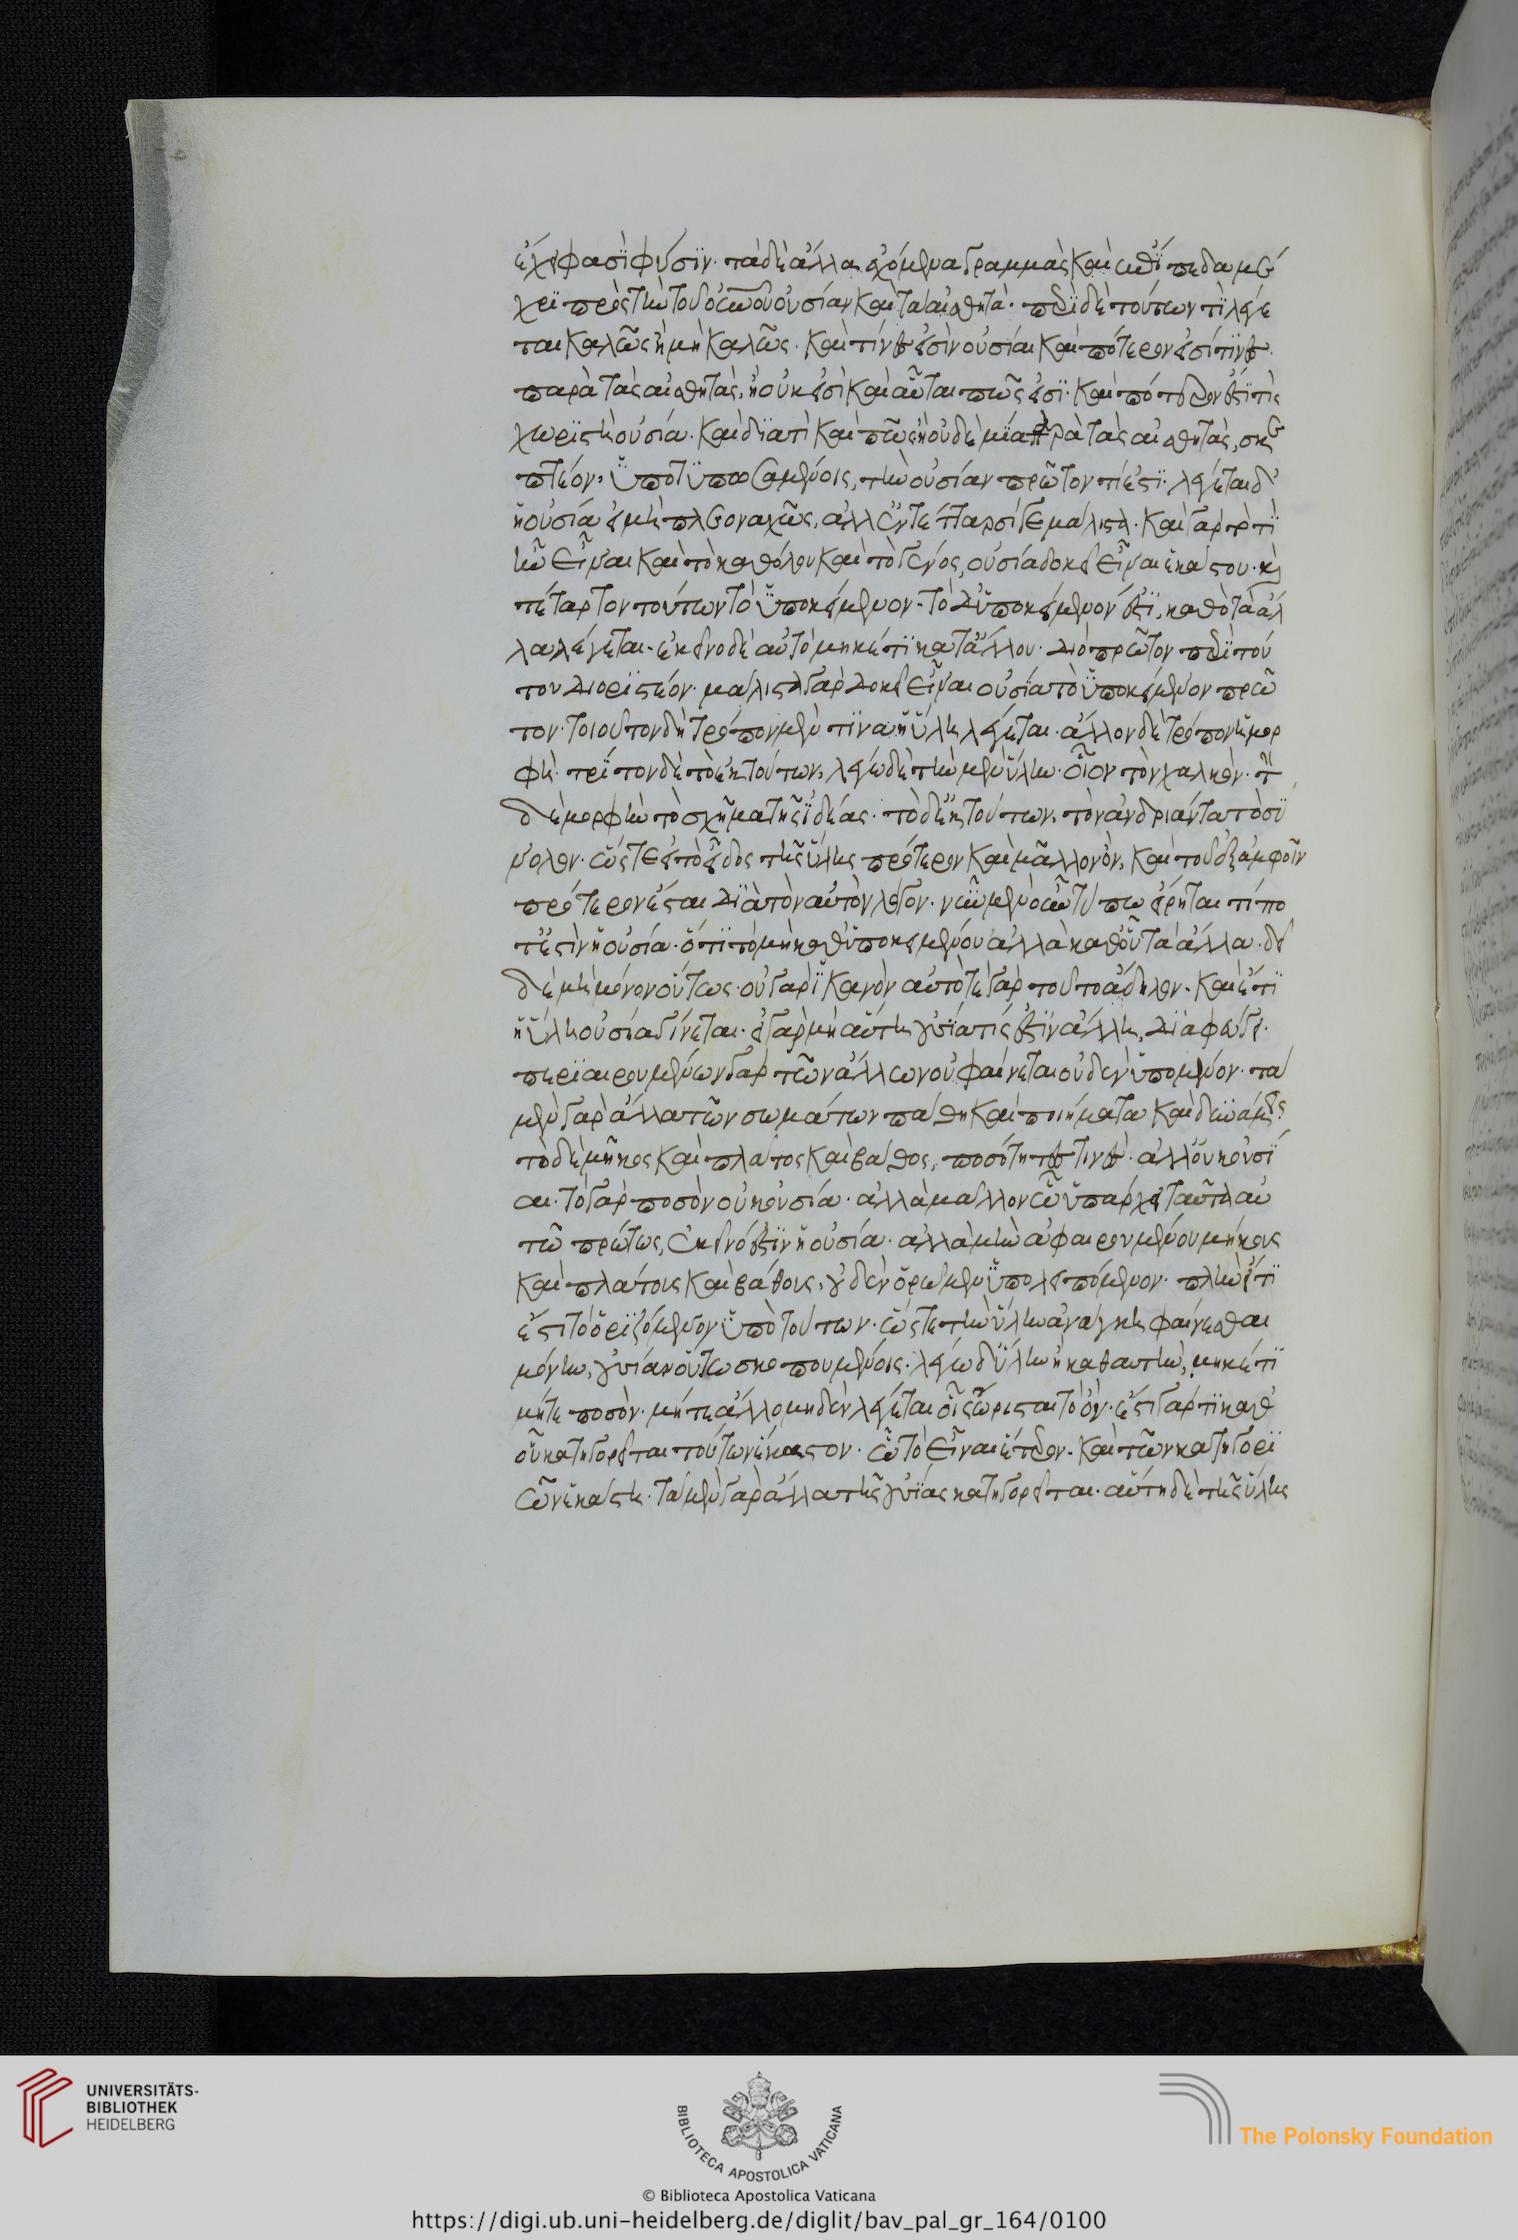 ἔχειν φασὶ φύσιν· τὰ δὲ ἄλλα ἐχόμενα γραμμὰς καὶ ἐπίπεδα μέ
χρι πρὸς τὴν τοῦ οὐρανοῦ οὐσίαν καὶ τὰ αἰσθητά· περὶ δὴ τούτων τί λέγε
ται καλῶς ἢ μὴ καλῶς· καὶ τίνες εἰσὶν οὐσίαι καὶ πότερον εἰσί τινες
παρὰ τὰς αἰσθητὰς, ἢ οὐκ εἰσὶ καὶ αὗται πῶς εἰσί· καὶ πότερον ἐστί τις
χωριστὴ οὐσία· καὶ διατί καὶ πῶς ἢ οὐδεμία παρὰ τὰς αἰσθητὰς, σκε
πτέον· ὑποτυπωσαμένοις, τὴν οὐσίαν πρῶτον τί ἐστι· λέγεται δ'
ἡ οὐσία εἰ μὴ πλεοναχῶς, ἀλλ' ἔν τέτταρσί γε μάλιστα· καὶ γὰρ τὸ τί
ἦν εἶναι καὶ τὸ καθόλου καὶ τὸ γένος, οὐσία δοκεῖ εἶναι ἑκάστου· καὶ
τέταρτον τούτων τὸ ὑποκείμενον· τὸ δ' ὑποκείμενόν ἐστι, καθ' ὃ τὰ ἄλ
λα λέγεται· ἐκεῖνο δὲ αὐτὸ μηκέτι κατ' ἄλλου· διὸ πρῶτον περὶ τού
του διοριστέον· μάλιστα γὰρ δοκεῖ εἶναι οὐσία τὸ ὑποκείμενον πρῶ
τον· τοιοῦτον δὴ τρόπον μὲν τινα ἡ ὕλη λέγεται· ἄλλον δὲ τρόπον ἡ μορ
φή· τρίτον δὲ τὸ ἐκ τούτων, λέγω δὲ τὴν μὲν ὕλην· οἷον τὸν χαλκόν· τὴν
δὲ μορφὴν τὸ σχῆμα τῆς ἰδέας· τὸ δ' ἐκ τούτων, τὸν ἀνδριάντα τὸ σύ
νολον· ὥστε εἰ τὸ εἶδος τῆς ὕλης πρότερον καὶ μᾶλλον ὄν, καὶ τοῦ ἐξ ἀμφοῖν
πρότερον ἔσται διὰ τὸν αὐτὸν λόγον· νῦν μὲν οὖν τύπῳ εἴρηται τί πο
τ' ἐστὶν ἡ οὐσία· ὅτι τὸ μὴ καθ' ὑποκειμένου ἀλλὰ καθ' οὗ τὰ ἄλλα· δεῖ
δὲ μὴ μόνον οὕτως· οὐ γὰρ ἱκανόν αὐτό τε γὰρ τοῦτο ἄδηλον· καὶ ἔτι
ἡ ὕλη οὐσία γίνεται· εἰ γὰρ μὴ αὕτη οὐσία τίς ἐστιν ἄλλη, διαφεύγει·
περιαιρουμένων γὰρ τῶν ἄλλων οὐ φαίνεται οὐδὲν ὑπομένον· τὰ
μὲν γὰρ ἄλλα τῶν σωμάτων πάθη καὶ ποιήματα καὶ δυνάμεις
τὸ δὲ μῆκος καὶ πλάτος καὶ βάθος, ποσότητες τινὲς· ἀλλ' οὐκ οὐσί
αι· τὸ γὰρ ποσὸν οὐκ οὐσία· ἀλλὰ μᾶλλον ᾧ ὑπάρχει ταῦτα αὐ
τῷ πρώτως, ἐκεῖνό ἐστιν ἡ οὐσία· ἀλλὰ μὴν ἀφαιρουμένου μήκους
καὶ πλάτους καὶ βάθους, οὐδὲν ὁρῶμεν ὑπολειπόμενον· πλὴν εἴ τι
ἔστι τὸ ὁριζόμενον ὑπὸ τούτων· ὥστε τὴν ὕλην ἀνάγκη φαίνεσθαι
μόνην, οὐσίαν οὕτω σκοπουμένοις· λέγω δ' ὕλην ἢ καθ' αὑτὴν, μηκέτι
μήτε ποσὸν· μήτε ἄλλο μηδὲν λέγεται οἷς ὥρισται τὸ ὄν· ἔστι γάρ τι καθ'
οὗ κατηγορεῖται τούτων ἕκαστον· ᾧ τὸ εἶναι ἕτερον· καὶ τῶν κατηγορι
ῶν ἑκάστη· τὰ μὲν γὰρ ἄλλα τῆς οὐσίας κατηγορεῖται· αὕτη δὲ τῆς ὕλης
UNIVERSITÄTS-
BIBLIOTHEK
HEIDELBERG
BIBLIOTECA APOSTOLICA VATICANA
The Polonsky Foundation
© Biblioteca Apostolica Vaticana
https://digi.ub.uni-heidelberg.de/diglit/bav_pal_gr_164/0100